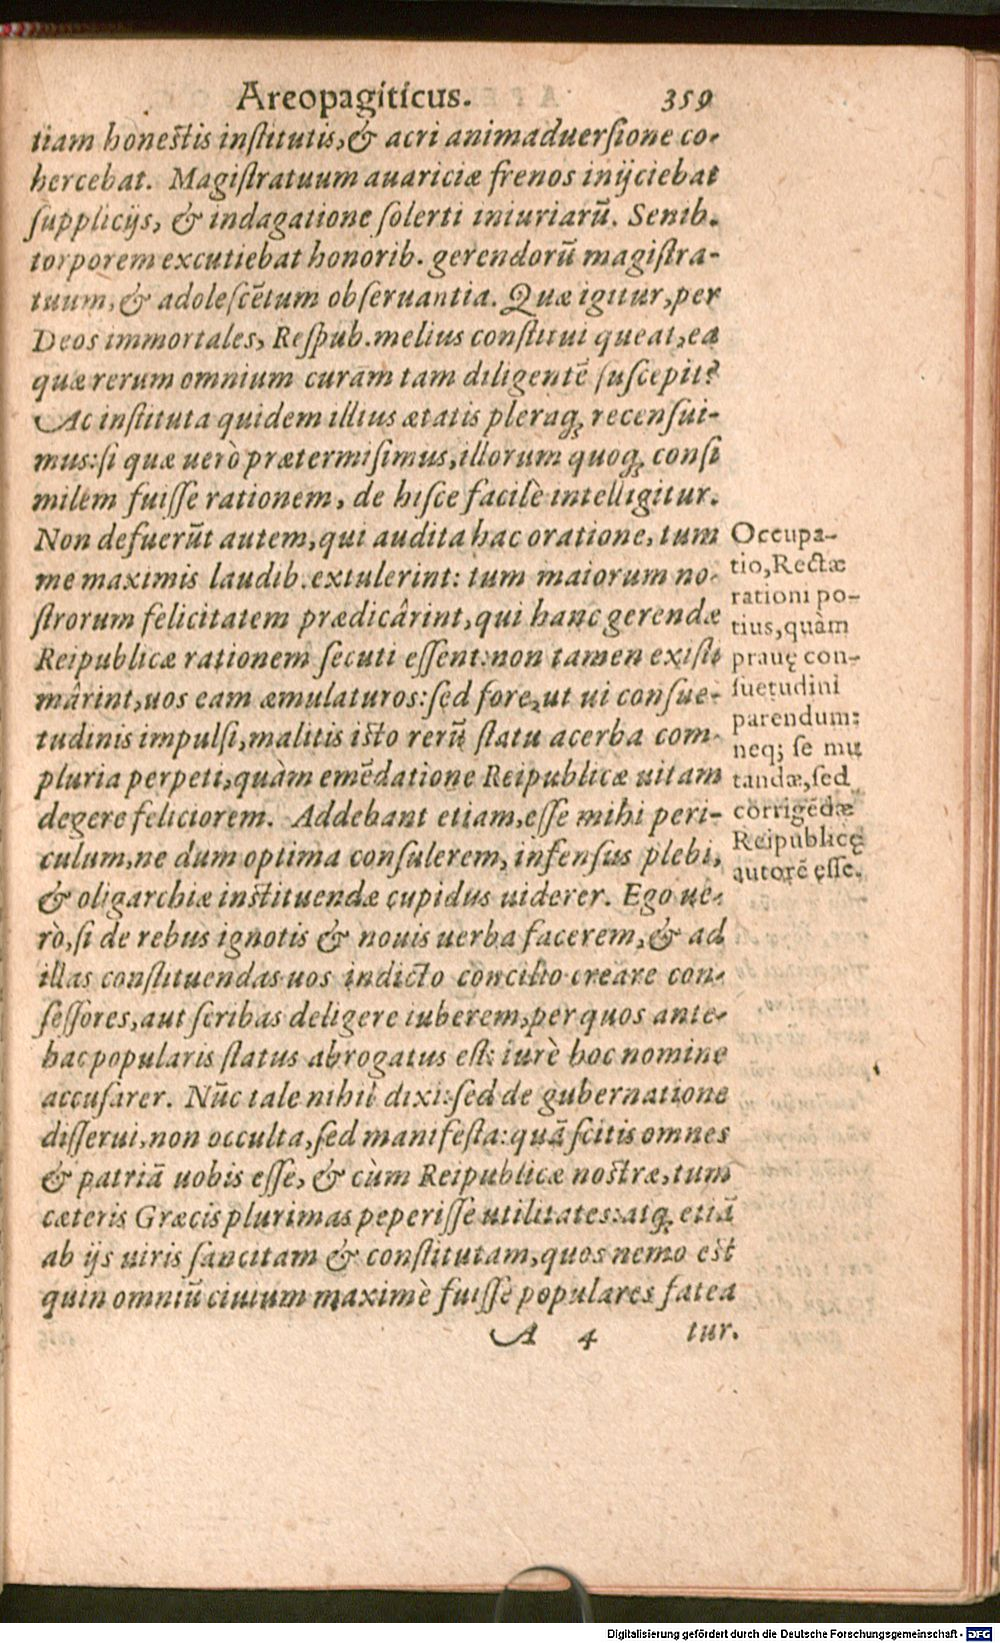 Areopagiticus. 359
tiam honestis institutis, & acri animaduersione co-
hercebat. Magistratuum auariciæ frenos inijciebat
supplicijs, & indagatione solerti iniuriarũ. Senib.
torporem excutiebat honorib. gerendorũ magistra-
tuum, & adolescẽtum obseruantia. Quæ igitur, per
Deos immortales, Respub. melius constitui queat, ea
quæ rerum omnium curam tam diligentẽ suscepit?
Ac instituta quidem illius ætatis pleraq; recensui-
mus: si quæ uerò prætermisimus, illorum quoq; consi
milem fuisse rationem, de hisce facilè intelligitur.
Non defuerũt autem, qui audita hac oratione, tum
me maximis laudib. extulerint: tum maiorum no-
strorum felicitatem prædicârint, qui hanc gerendæ
Reipublicæ rationem secuti essent: non tamen existi
mârint, uos eam æmulaturos: sed fore, ut ui consue-
tudinis impulsi, malitis isto rerũ statu acerba com-
pluria perpeti, quàm emẽdatione Reipublicæ uitam
degere feliciorem. Addebant etiam, esse mihi peri-
culum, ne dum optima consulerem, infensus plebi,
& oligarchiæ instituendæ cupidus uiderer. Ego ue-
rò, si de rebus ignotis & nouis uerba facerem, & ad
illas constituendas uos indicto concilio creare con-
sessores, aut scribas deligere iuberem, per quos ante-
hac popularis status abrogatus est: iurè hoc nomine
accusarer. Nũc tale nihil dixi: sed de gubernatione
disserui, non occulta, sed manifesta: quã scitis omnes
& patriã uobis esse, & cùm Reipublicæ nostræ, tum
cæteris Græcis plurimas peperisse utilitates: atq; etiã
ab ijs uiris sancitam & constitutam, quos nemo est
quin omniũ ciuium maximè fuisse populares fatea
A 4 tur.
Occupa-
tio, Rectæ
rationi po-
tius, quàm
prauę con-
suetudini
parendum:
neq; se mu
tandæ, sed
corrigẽdæ
Reipublicę
autorẽ esse.
Digitalisierung gefördert durch die Deutsche Forschungsgemeinschaft - DFG